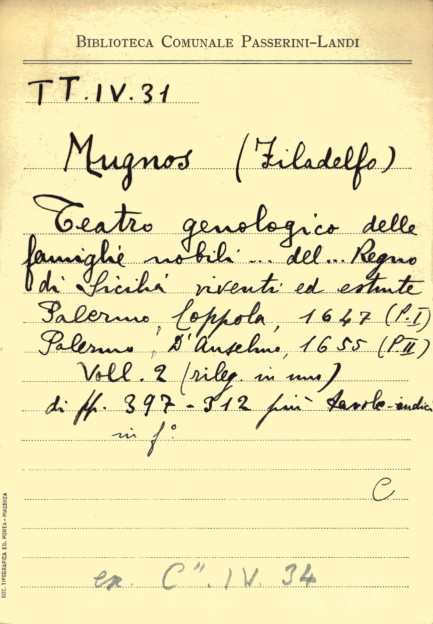 BIBLIOTECA COMUNALE PASSERINI-LANDI
TT.IV.31
Mugnos (Filadelfo)
Teatro genologico delle
famiglie nobili ... del ... Regno
di Sicilia viventi ed estinte
Palermo, Coppola, 1647 (P.I)
Palermo, D'Anselmo, 1655 (P.II)
Voll. 2 (rileg. in uno)
di pp. 397-312 più tavole-indici
in f.º
C
ex. C". IV. 34
SOC. TIPOGRAFICA ED. PORTA - PIACENZA